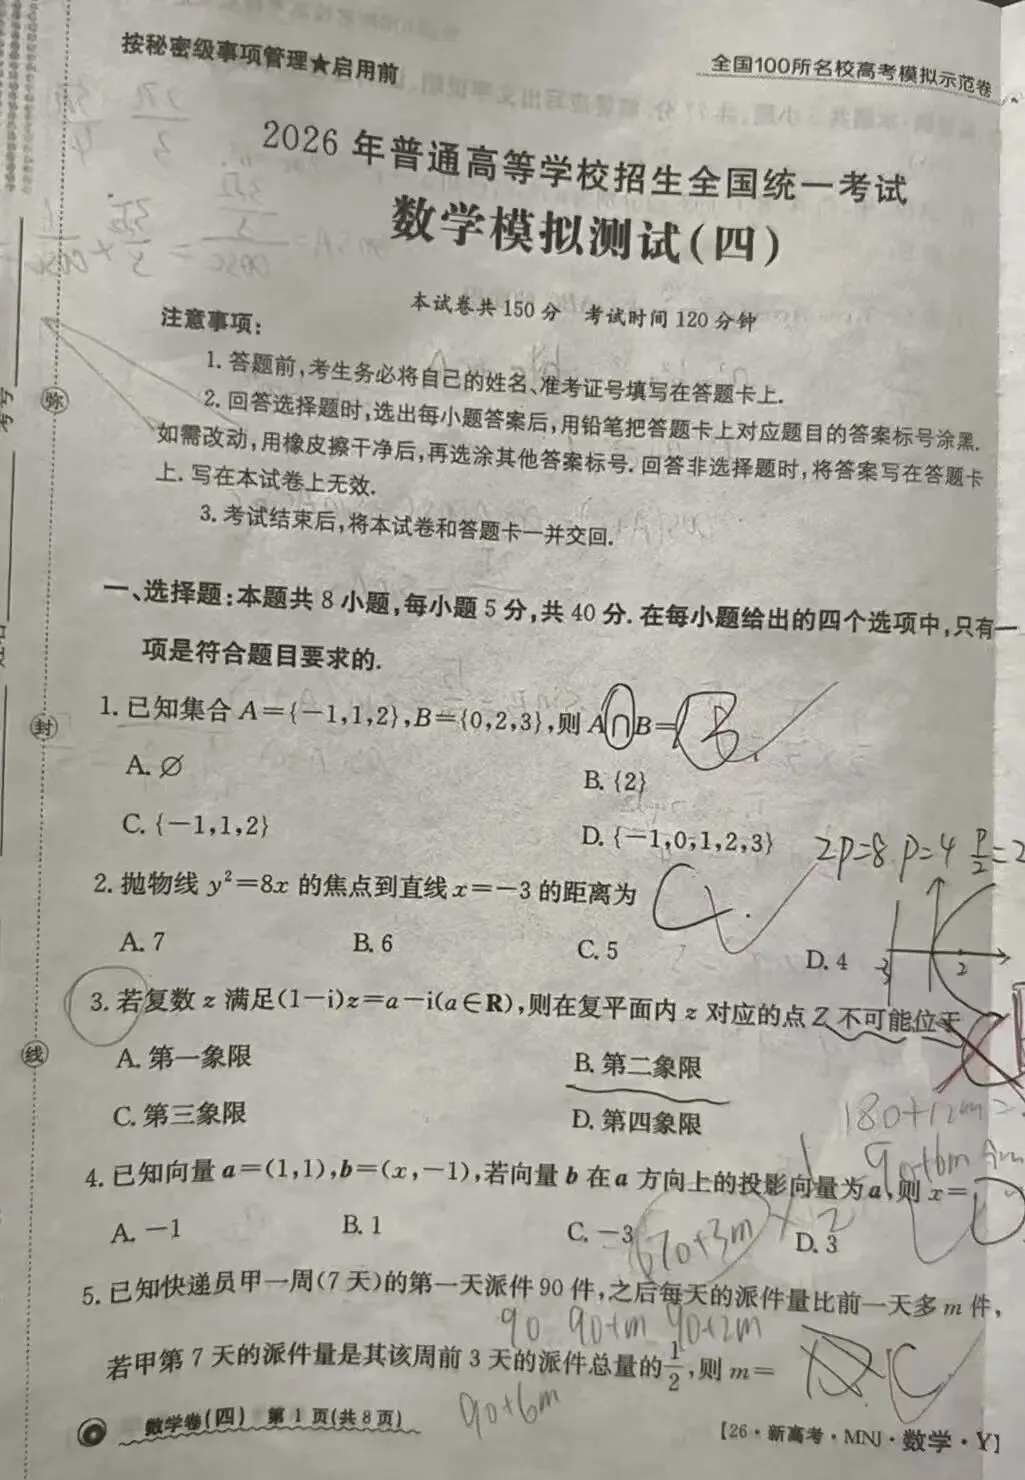 按秘密级事项管理★启用前
全国100所名校高考模拟示范卷
2026年普通高等学校招生全国统一考试
数学模拟测试(四)
本试卷共150分 考试时间120分钟
注意事项:
1. 答题前,考生务必将自己的姓名、准考证号填写在答题卡上.
2. 回答选择题时,选出每小题答案后,用铅笔把答题卡上对应题目的答案标号涂黑.
如需改动,用橡皮擦干净后,再选涂其他答案标号. 回答非选择题时,将答案写在答题卡
上. 写在本试卷上无效.
3. 考试结束后,将本试卷和答题卡一并交回.
弥
封
线
一、选择题:本题共8小题,每小题5分,共40分. 在每小题给出的四个选项中,只有一
项是符合题目要求的.
1. 已知集合A={-1,1,2},B={0,2,3},则A∩B=
B
A. ∅
B. {2}
C. {-1,1,2}
D. {-1,0,1,2,3}
2p=8 p=4 p/2=2
2. 抛物线y²=8x的焦点到直线x=-3的距离为
C
A. 7
B. 6
C. 5
D. 4
-3 2
3. 若复数z满足(1-i)z=a-i(a∈R),则在复平面内z对应的点Z不可能位于
A. 第一象限
B. 第二象限
C. 第三象限
D. 第四象限
180+12m=
4. 已知向量a=(1,1),b=(x,-1),若向量b在a方向上的投影向量为a,则x=
D
A. -1
B. 1
C. -3
D. 3
5. 已知快递员甲一周(7天)的第一天派件90件,之后每天的派件量比前一天多m件,
90 90+m 90+2m
若甲第7天的派件量是其该周前3天的派件总量的1/2,则m=
C
90+6m
数学卷(四) 第1页(共8页)
【26·新高考·MNJ·数学·Y】